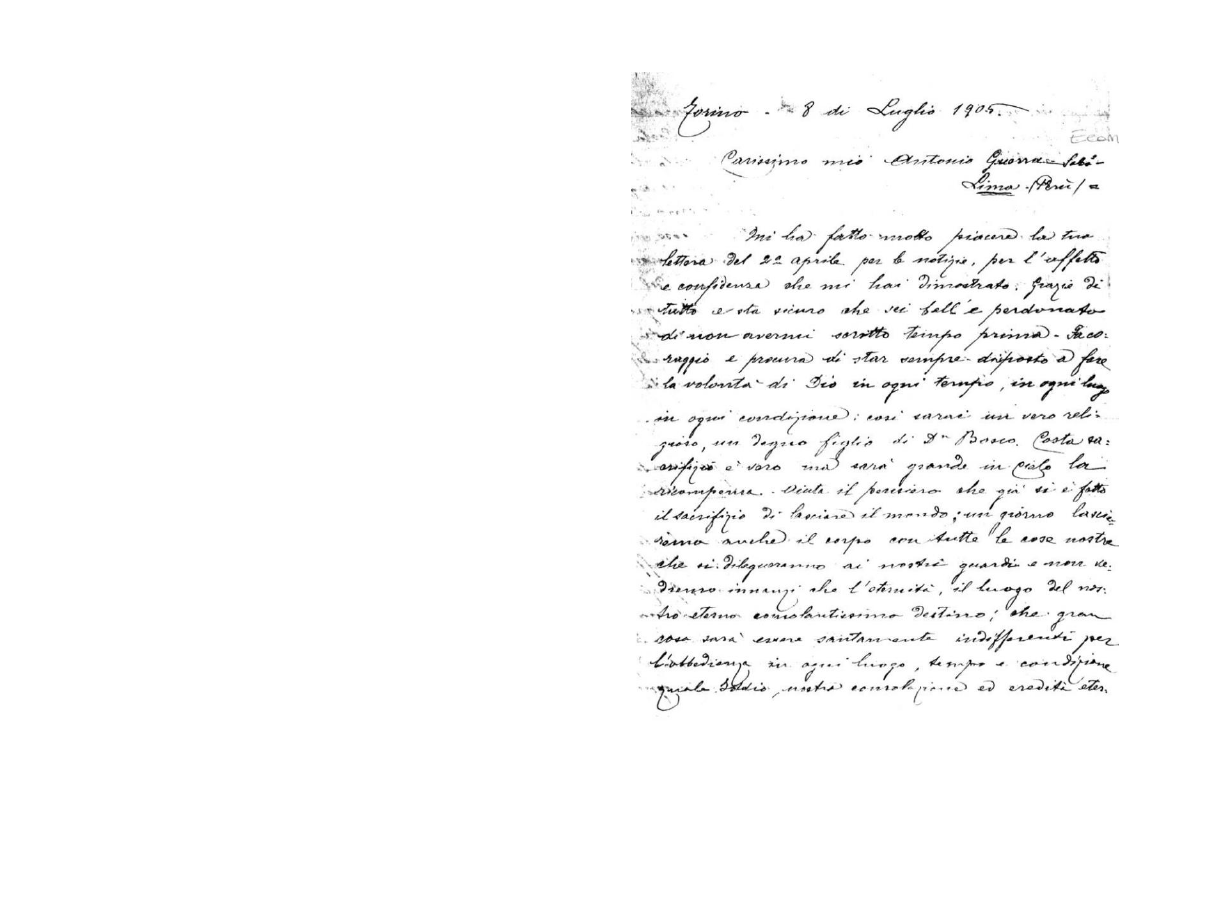 Torino - 8 di Luglio 1905.
Ecom
Carissimo mio Antonio Guerra =
Lima (Perù) =
Mi ha fatto molto piacere la tua
lettera del 22 aprile per le notizie, per l'affetto
e confidenza che mi hai dimostrato. Grazie di
tutto e sta sicuro che sei bell'e perdonato
di non avermi scritto tempo prima - Fa co:
raggio e procura di star sempre disposto a fare
la volontà di Dio in ogni tempo, in ogni luogo
in ogni condizione: così sarai un vero reli-
gioso, un degno figlio di Dn Bosco. Costa sa:
crifizi è vero ma sarà grande in cielo la
ricompensa. il pensiero che già si è fatto
il sacrifizio di lasciare il mondo; un giorno lasce
remo anche il corpo con tutte le cose nostre
che si dilegueranno ai nostri guardi e non ve:
dremo innanzi che l'eternità, il luogo del nos:
tro eterno consolantissimo destino; che gran
cosa sarà essere santamente indifferenti per
l'obbedienza in ogni luogo, tempo e condizione
Iddio nostra consolazione ed eredità eter.